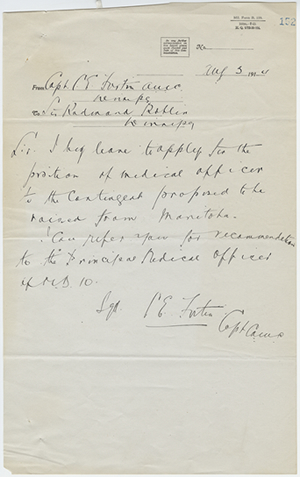 152
No.
Aug 3 1914
From Capt P E Fortin AMC
Winnipeg
To Sir Rodmond Roblin
Winnipeg
Sir. I beg leave to apply for the
position of medical officer
to the Contingent proposed to be
raised from Manitoba.
I Can refer you for recommendation
to the Principal Medical Officer
of M.D. 10.
Sgd. P E Fortin
Capt